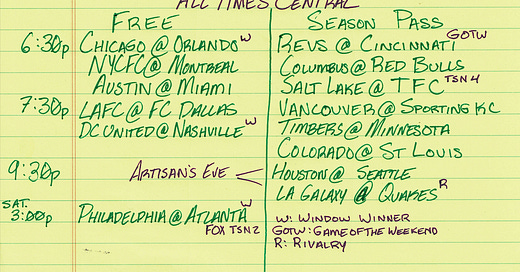 ALL TIMES CENTRAL
FREE
SEASON PASS
6:30p CHICAGO @ ORLANDO W
NYCFC @ MONTREAL
AUSTIN @ MIAMI
7:30p LAFC @ FC DALLAS
DC UNITED @ NASHVILLE W
REVS @ CINCINNATI GOTW
COLUMBUS @ RED BULLS
SALT LAKE @ TFC TSN4
VANCOUVER @ SPORTING KC
TIMBERS @ MINNESOTA
COLORADO @ ST LOUIS
9:30p ARTISAN'S EVE
HOUSTON @ SEATTLE
LA GALAXY @ QUAKES R
SAT.
3:00p PHILADELPHIA @ ATLANTA W
FOX TSN2
W: WINDOW WINNER
GOTW: GAME OF THE WEEKEND
R: RIVALRY